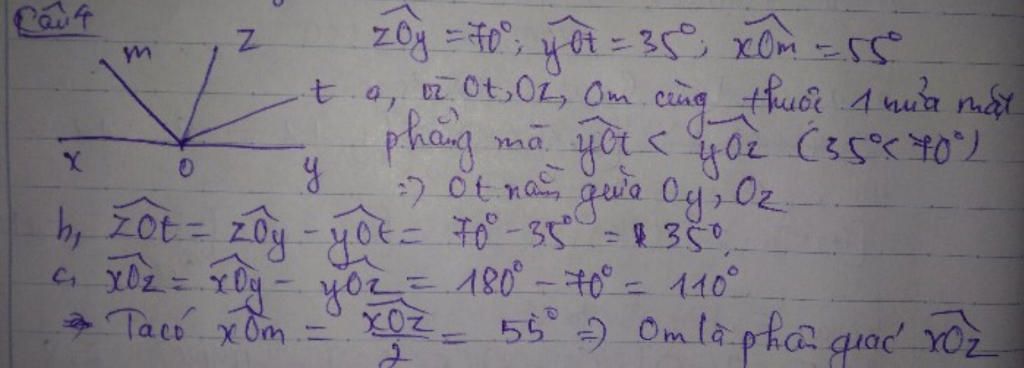 Câu 4
m z t x O y
zOy = 70°; yOt = 35°; xOm = 55°
a, vì Ot, Oz, Om cùng thuộc 1 nửa mặt
phẳng mà yOt < yOz (35° < 70°)
=> Ot nằm giữa Oy, Oz
b, zOt = zOy - yOt = 70° - 35° = 35°
c, xOz = xOy - yOz = 180° - 70° = 110°
=> Ta có xOm = xOz/2 = 55° => Om là phân giác xOz